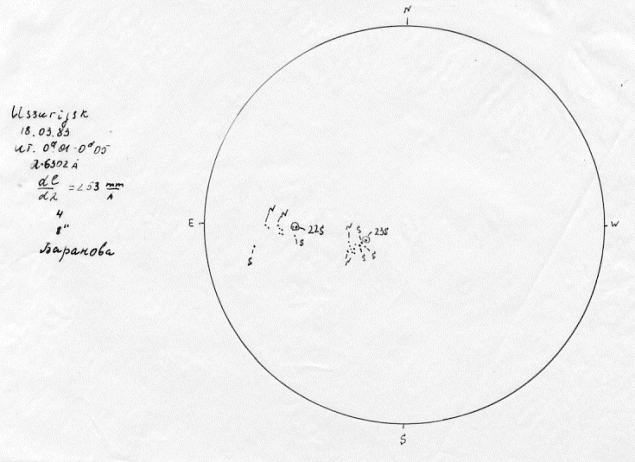 Ussurijsk
18.09.89
UT. 0ᵈ01-0ᵈ05
λ-6302 Å
dl/dλ = 253 mm/Å
4
8"
Баранова
N
E
W
S
N
N
22S
S
S
N
S
23S
N
S
S